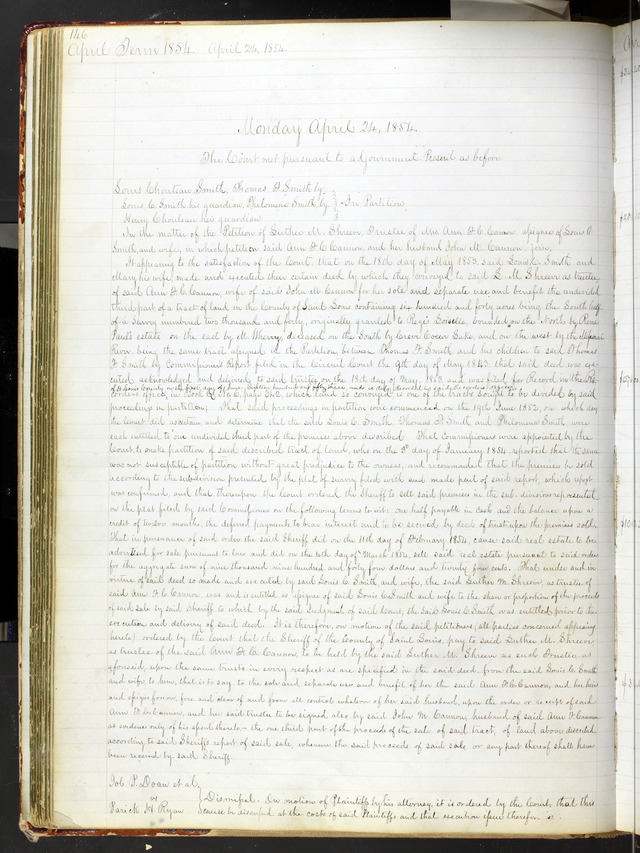 146
April Term 1854. April 24, 1854.
Monday April 24, 1854.
The Court met pursuant to adjournment Present as before
Louis Chouteau Smith, Thomas F Smith by
Louis C. Smith his guardian, Philomene Smith by } In Partition
Henry Chouteau her guardian
In the matter of the Petition of Luther M. Shreve, Trustee of Mrs Ann F. C. Cannon, assignee of Louis C
Smith, and wife, in which petition said Ann F. C. Cannon, and her husband John M. Cannon join,
It appearing to the satisfaction of the Court, that on the 18th day of May 1853, said Louis C. Smith and
Mary his wife, made and executed their certain deed by which they conveyed to said L. M. Shreve as trustee
of said Ann F. C. Cannon, wife of said John M. Cannon for her sole and separate use and benefit the undivided
third part of a tract of land in the County of Saint Louis containing six hundred and forty acres being the South half
of a Survey numbered two thousand and forty, originally granted to Regis Loiselle, bounded on the North by René
Paul's estate on the east by M. deceased on the South by Creve Coeur Lake, and on the west by the Missouri
River being the same tract assigned in the Partition between Thomas F. Smith and his children to said Thomas
F Smith by Commissioners Report filed in the Circuit Court the 9th day of May 1843, that said deed was exe-
cuted acknowledged and delivered to said trustee on the 18th day of May, 1853 and was filed for Record in the Re-
corders office, in Book No 6, page 242, which land so conveyed is one of the tracts sought to be divided by said
proceedings in partition; That said proceedings in partition were commenced on the 19th June 1852, on which day
the Court did ascertain and determine that the said Louis C. Smith, Thomas F. Smith and Philomene Smith were
each entitled to one undivided third part of the premises above described. That Commissioners were appointed by the
Court to make partition of said described tract of land, who on the 3d day of January 1854 reported that the same
was not susceptible of partition without great prejudice to the owners, and recommended that the premises be sold
according to the subdivision presented by the plat of survey filed with and made part of said report, which report
was confirmed, and that thereupon the Court ordered the Sheriff to sell said premises in the sub-division represented
on the plat filed by said Commissioners on the following terms to wit: one half payable in cash and the balance upon a
credit of twelve months, the deferred payments to bear interest and to be secured by deeds of trust upon the premises sold.
That in pursuance of said order the said Sheriff did on the 11th day of February 1854, cause said real estate to be
advertised for sale pursuant to law and did on the day of March 1854, sell said real estate pursuant to said order
for the aggregate sum of nine thousand nine hundred and forty four dollars and twenty four cents. That under and in
virtue of said deed so made and executed by said Louis C. Smith and wife, the said Luther M. Shreve, as trustee of
said Ann F. C. Cannon, was and is entitled as assignee of said Louis C. Smith and wife to the share or proportion of the proceeds
of said sale by said Sheriff to which by the said Judgment of said Court, the said Louis C. Smith was entitled prior to the
execution and delivery of said deed. It is therefore, on motion of the said petitioners, (all parties concerned appearing
hereto) ordered by the Court that the Sheriff of the County of Saint Louis, pay to said Luther M. Shreve
as trustee of the said Ann F. C. Cannon, to be held by the said Luther M. Shreve as such Trustee, as
aforesaid, upon the same trusts in every respect as are specified in the said deed, from the said Louis C. Smith
and wife, to him, that is to say, to the sole and separate use and benefit of her the said Ann F. C. Cannon, and her heirs
and assigns forever, free and clear of and from all control whatever of her said husband, upon the order or receipt of said
Ann F. C. Cannon, and her said trustee to be signed also by said John M. Cannon, husband of said Ann F. C. Cannon
as evidence only of his assent thereto,—the one third part of the proceeds of the sale of said tract, of land above described
according to said Sheriffs report of said sale, whenever the said proceeds of said sale or any part thereof shall have
been received by said Sheriff.
Job P. Doan et al,
vs } Dismissal. On motion of Plaintiffs by his attorney, it is ordered by the Court, that this
H. Ryan cause be dismissed at the costs of said Plaintiffs and that execution issue therefor &c.